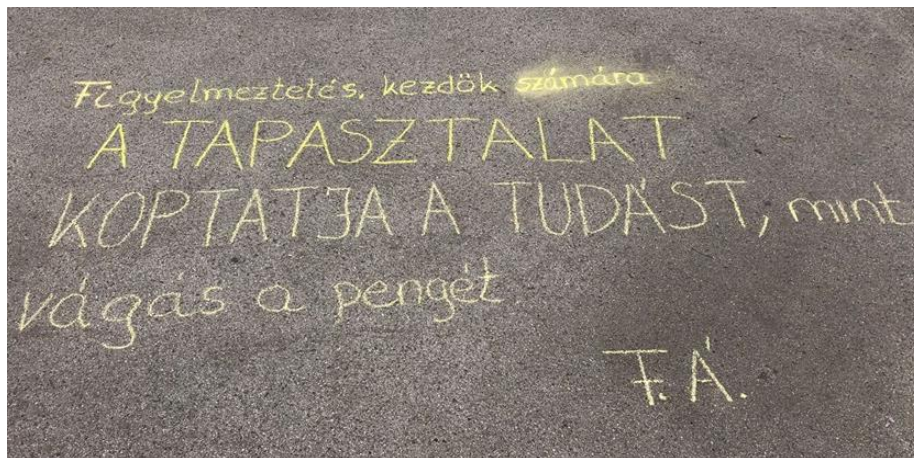 Figyelmeztetés. kezdők számára
A TAPASZTALAT
KOPTATJA A TUDÁST, mint
vágás a pengét
F.Á.